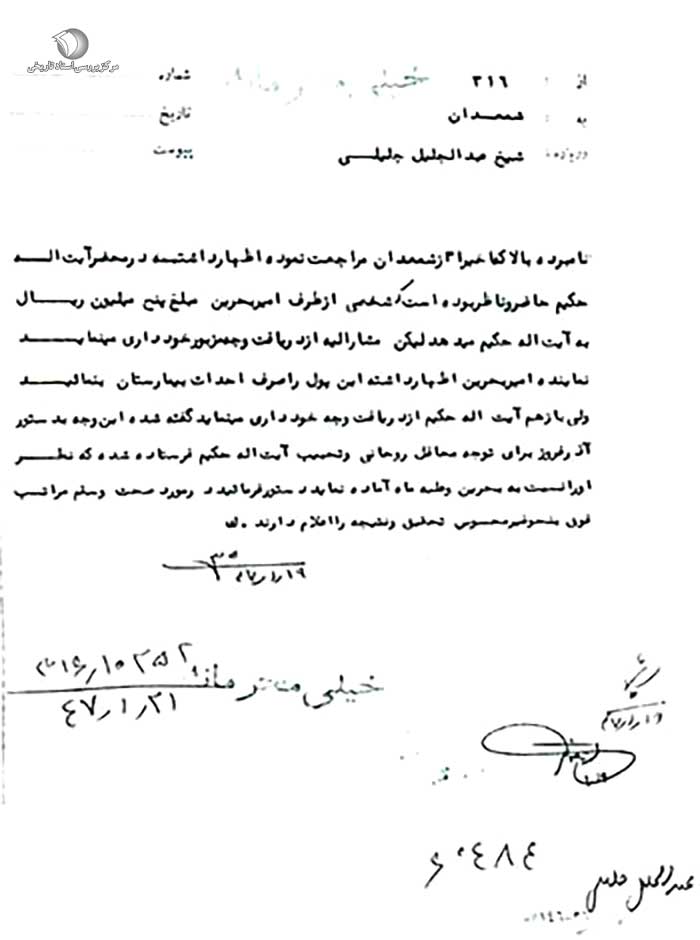 مرکز بررسی اسناد تاریخی
از : ۳۱۶ خیلی محرمانه شماره
به : شمعدان تاریخ
درباره : شیخ عبدالجلیل جلیلی پیوست
نامبرده بالا که اخیرا از شمعدان مراجعت نموده اظهار داشته در محضر آیت اله
حکیم حاضر و ناظر بوده است که شخصی از طرف امیر بحرین مبلغ پنج میلیون ریال
به آیت اله حکیم میدهد لیکن مشارالیه از دریافت وجه مزبور خودداری مینماید
نماینده امیر بحرین اظهار داشته این پول را صرف احداث بیمارستان بنمائید
ولی باز هم آیت اله حکیم از دریافت وجه خودداری مینماید گفته شده این وجه بدستور
آذرفروز برای توجه محافل روحانی و تحبیب آیت اله حکیم فرستاده شده که نظر
او را نسبت به بحرین وطبه ماه آماده نماید دستور فرمائید در مورد صحت وسقم مراتب
فوق بنحو غیر محسوس تحقیق و نتیجه را اعلام دارند .
۱۹/۱/۴۷
خیلی محرمانه
۳۱۶/۱۰۲۵۲
۴۷/۱/۲۱
۱۹/۱/۴۷
۴۸۴
عبدالجلیل جلیلی